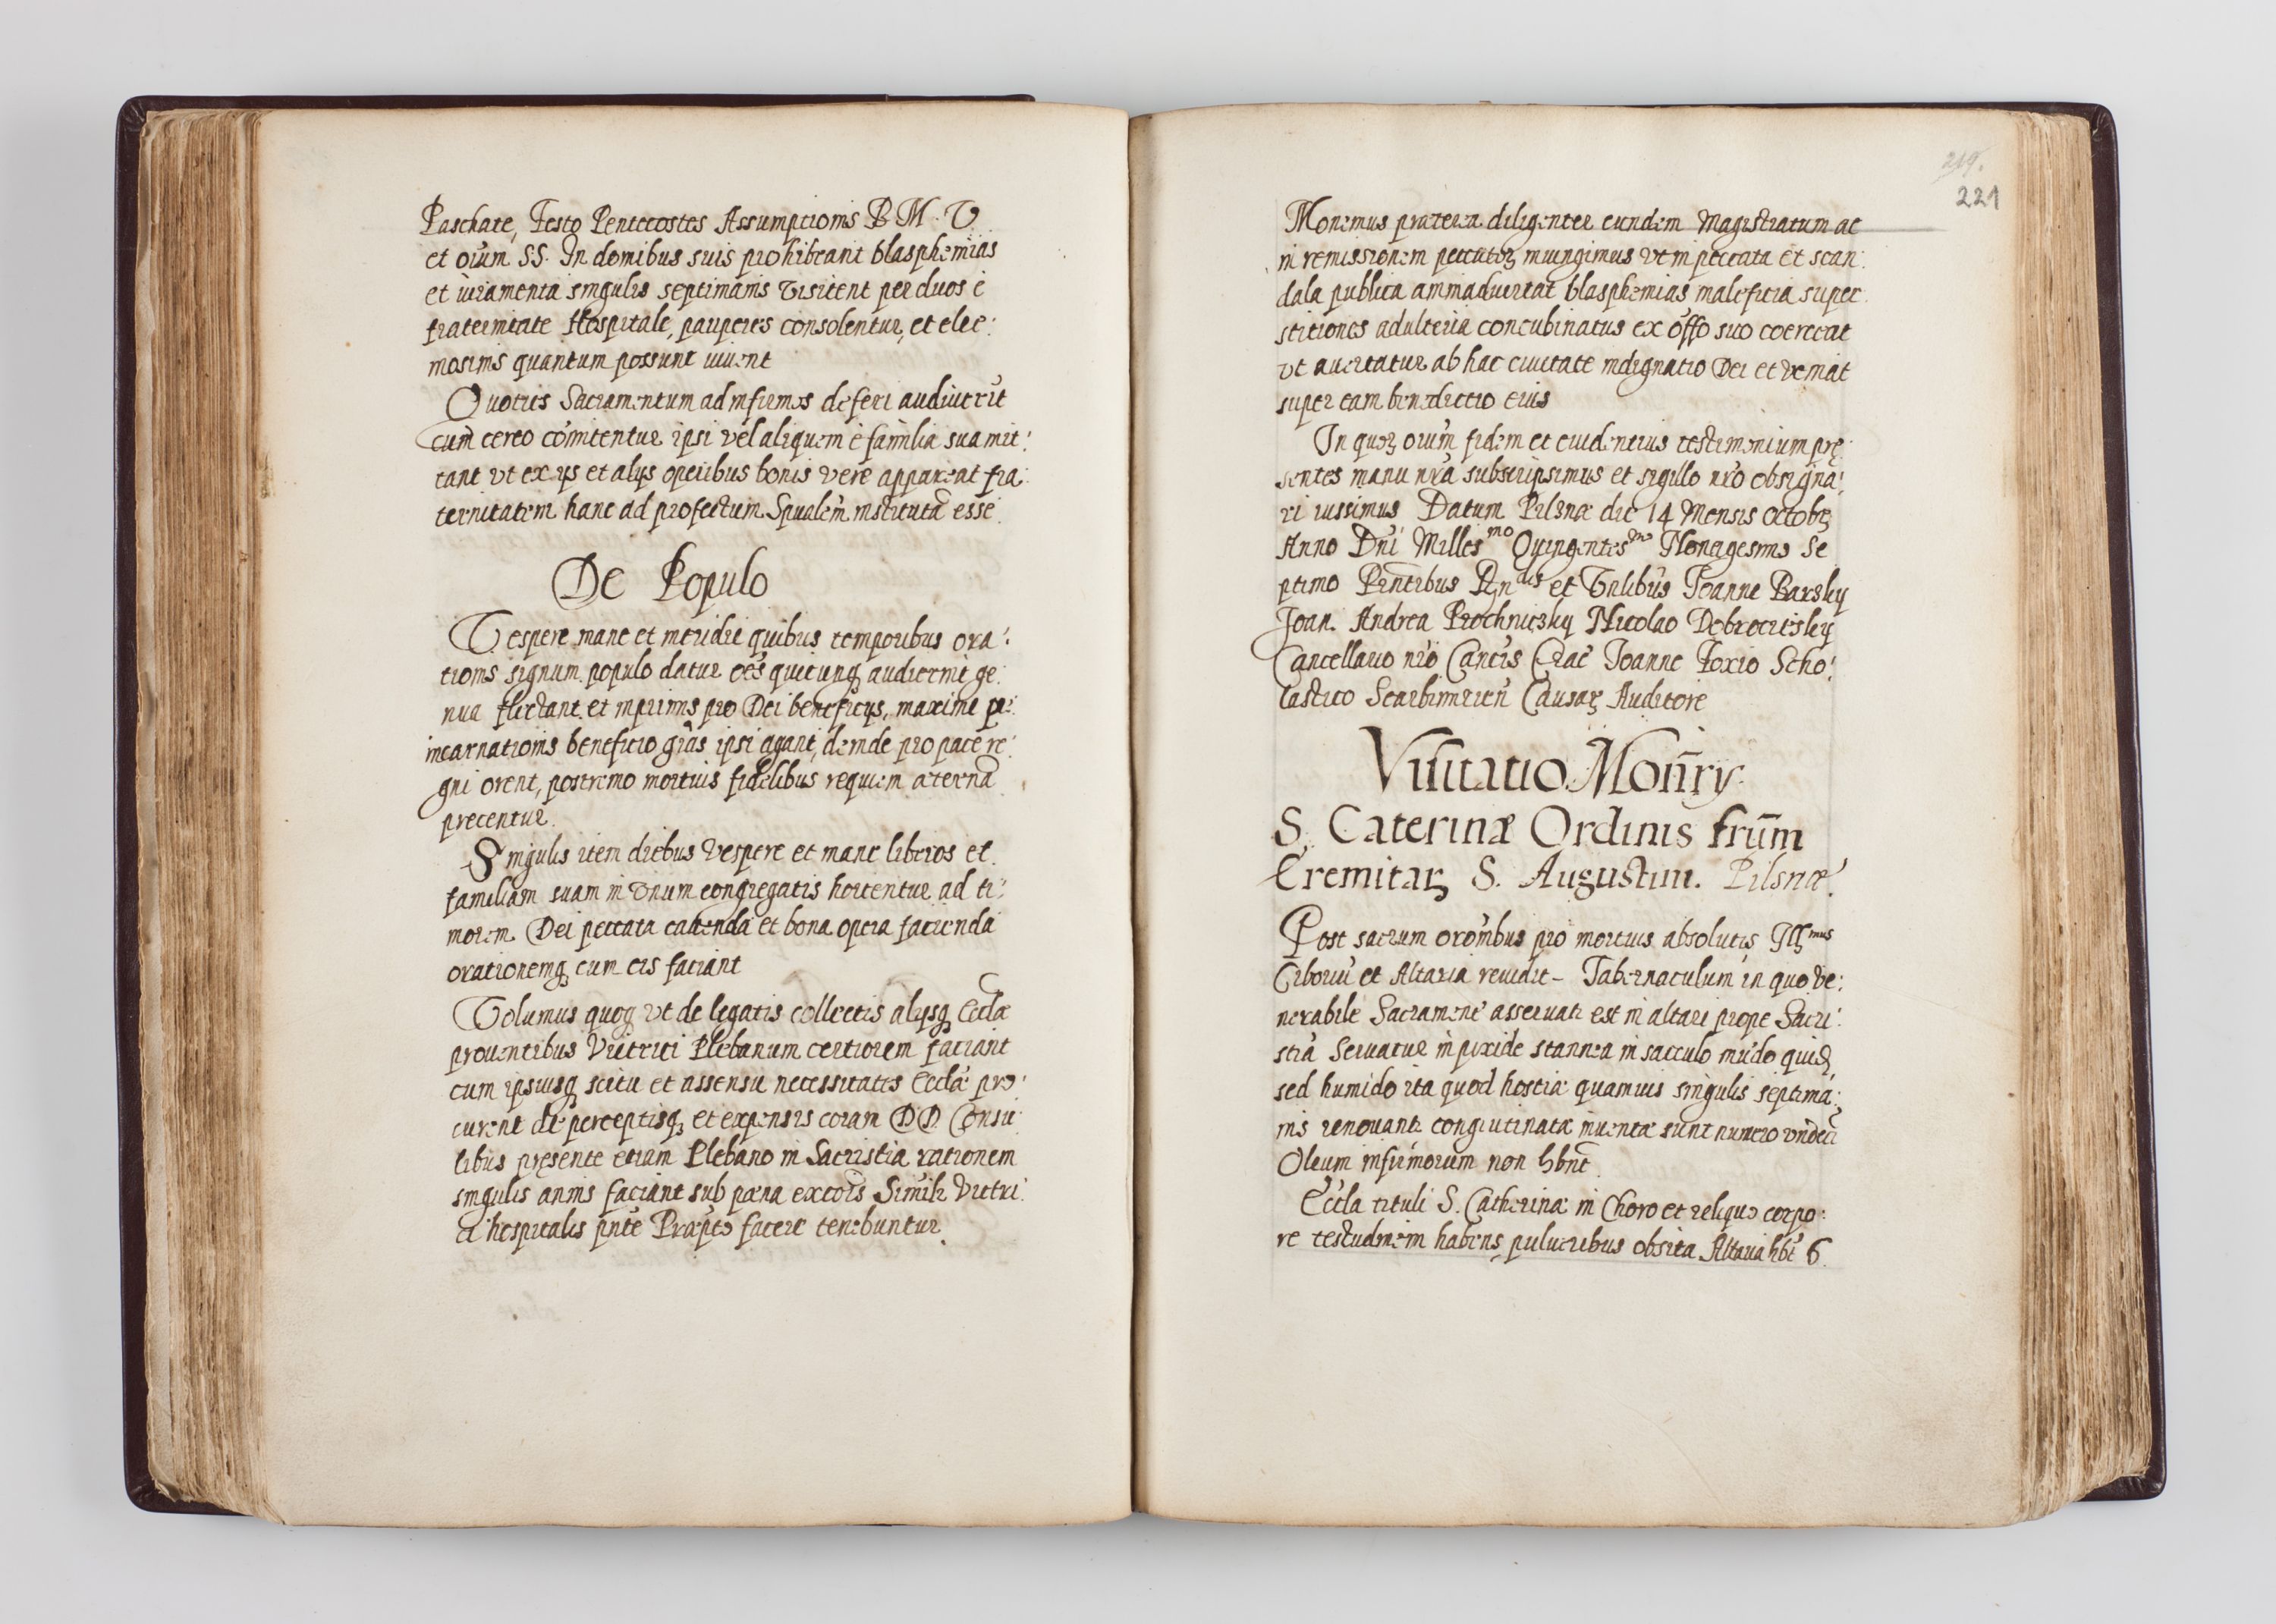 Paschate, Festo Pentecostes Assumptionis B. M. V.
et oium SS. In domibus suis prohibeant blasphemias
et iuramenta singulis septimanis visitent per duos è
fraternitate Hospitale, pauperes consolentur, et elee:
mosinis quantum possunt iuuent
Quoties Sacramentum ad infirmos deferi audiuerīt
cum cereo comitentur ipsi vel aliquem è familia sua mit:
tant vt ex ijs et alijs operibus bonis verè appareat fra:
ternitatem hanc ad profectum Spualem institutā esse.
De Populo
Vespere mane et meridie quibus temporibus ora:
tionis signum populo datur oēs quicunq audierint ge:
nua flectant et inprimis pro Dei beneficijs, maximè pr:
incarnationis beneficio grās ipsi agant, deinde pro pace re:
gni orent, postremo mortuis fidelibus requiem aternā
precentur.
Singulis item diebus Vespere et mane liberos et
familiam suam in vnum congregatis hortentur ad ti:
morem Dei peccata cauenda et bona opera facienda
orationemq cum eis faciant
Volumus quoq vt de legatis collectis alijsq Eccłæ
prouentibus Vitrici Plebanum certiorem faciant
cum ipsiusq scitu et assensu necessitates Eccłæ pro:
curent de perceptisq et expensis coram DD. Consu:
libus pręsente etiam Plebano in Sacristia rationem
singulis annis faciant sub pœna excoīs Simili Vitri:
ci hospitalis pnte Præpto facere tenebuntur.
219.
221
Monemus præterea diligenter eundem Magistratum ac
in remissionem peccatoꝝ iniungimus vt in peccata et scan:
dala publica animaduertat blasphemias maleficia super:
stitiones adulteria concubinatus ex offo suo coerceat
vt auertatur ab hac ciuitate indignatio Dei et veniat
super eam benedictio eius
In quoꝝ oium fidem et euidentius testimonium prę:
sentes manu nrā subscripsimus et sigillo nrō obsigna:
ri iussimus Datum Pilsnæ die 14 Mensis Octobꝛ
Anno Dni Milles^mo Quingentes^mo Nonagesimo Se
ptimo Pntibus Rndis et Vnlibus Joanne Barsky
Joan. Andrea Prochnicsky Nicolao Dobrociesky
Cancellario nro Cantis Crac Joanne Foxio Scho:
lastico Scarbimirien Causaꝝ Auditore
Visitatio Monrij
S. Caterinæ Ordinis frum
Eremitaꝝ S. Augustini. Pilsnæ.
Post sacrum oronibus pro mortuis absolutis Illmus
Ciboriū et Altaria reuidit – Tabernaculum in quo Ve:
nerabile Sacrament asseruatr est in altari prope Sacri:
stiā Seruatur in pixide stannea in sacculo mundo quidē
sed humido ita quod hostiæ quamuis singulis septima:
nis renouant conglutinatæ inuentæ sunt numero vndeci
Oleum infirmorum non hbnt.
Eccła tituli S. Catherinæ in Choro et reliquo corpo:
re testudinem habens pulueribus obsita Altaria hbt 6.